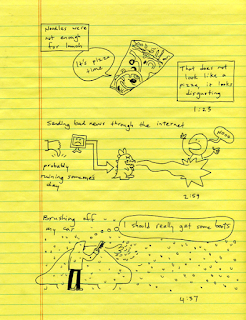 Noodles were
not enough
for lunch
It's pizza
time
That does not
look like a
pizza, it looks
disgusting
1:23
Sending bad news through the internet
nooo
probably
ruining someones
day
2:59
Brushing off
my car
I should really get some boots
4:37